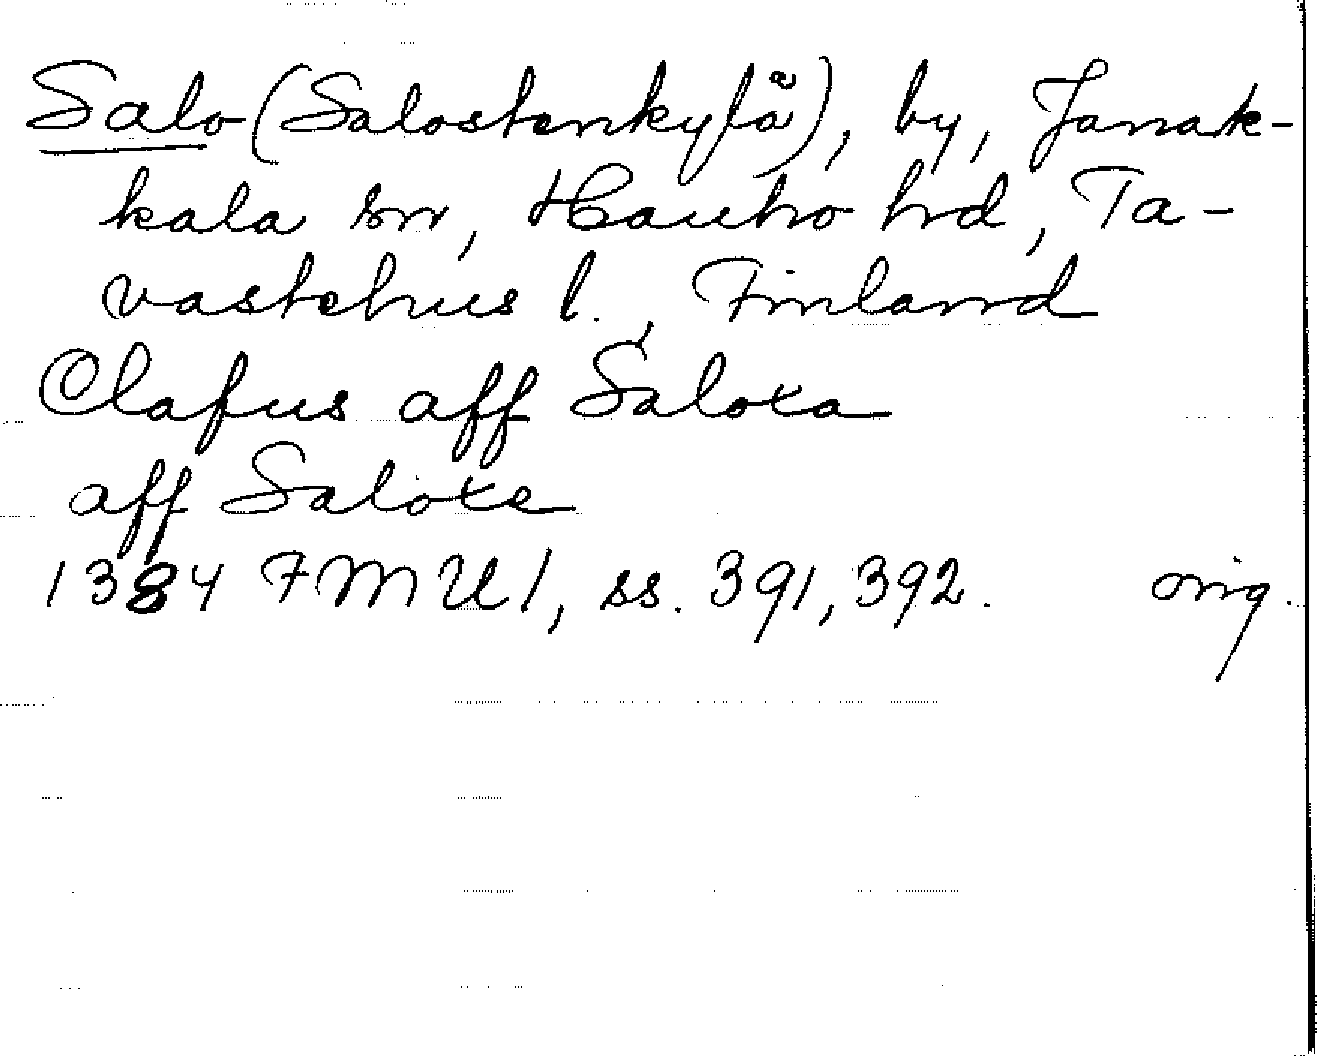 Salo (Salostenkylä), by, Janak-
kala sn, Hauho hrd, Ta-
vastehus l., Finland
Olafus aff Saloxa
aff Saloxe
1384 FMU 1, ss. 391, 392. orig.